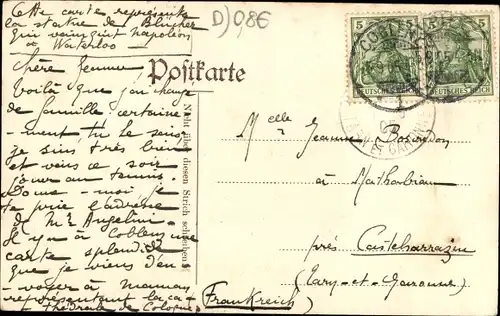 Cette carte représente
la statue de Blücher
qui vainquit Napoléon
à Waterloo
D) 0,8€
Chère Jeanne
Voilà que j'ai changé
de famille certaine-
ment tu le sais
je suis très bien
et viens ce soir
jouer au tennis.
Donne-moi je
te prie l'adresse
de Mr Angelini.
Il y a à Coblens une
carte splendide
que je viens d'en-
voyer à maman
représentant la ca-
thédrale de Cologne
Postkarte
Nicht über diesen Strich schreiben!
5 5
DEUTSCHES REICH DEUTSCHES REICH
COBLENZ
Melle Jeanne
à
près Castelsarrazin
(Tarn-et-Garonne)
(Frankreich)